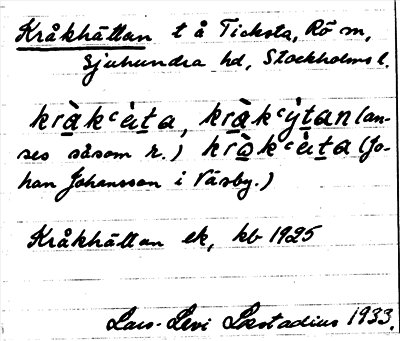 Kråkhättan t å Ticksta, Rö sn,
Sjuhundra hd, Stockholms l.
krå̀kʿä̀ta, krå̀kʿỳtan (an-
ses såsom r.) krå̀kʿä̀ta (Jo-
han Johansson i Väsby.)
Kråkhättan ek, kb 1925
Lars-Levi Læstadius 1933.